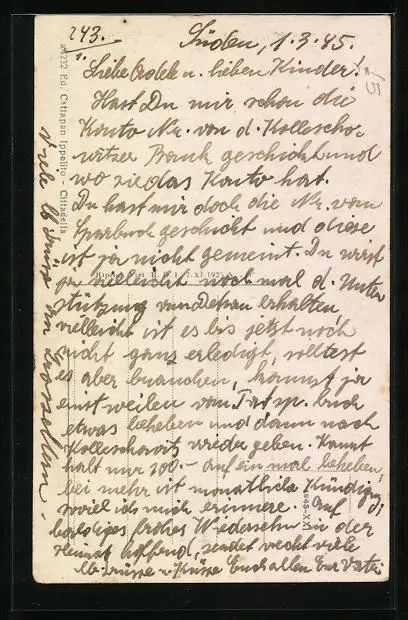 243.
Süden, 1.3.45.
1.
Liebe Adele u. lieben Kinder!
Hast Du mir schon die
Konto Nr. von d. Kollescho-
witzer Bank geschickt und
wo sie das Konto hat.
Du hast mir doch die Nr. vom
Sparbuch geschickt und diese
ist ja nicht gemeint. Du wirst
ja vielleicht noch mal d. Unter
stützung von Detwan erhalten,
vielleicht ist es bis jetzt noch
nicht ganz erledigt, solltest
es aber brauchen, kannst ja
einstweilen vom Postsp. buch
etwas beheben und dann nach
Kolleschowitz wieder geben. Kannst
halt nur 100.- auf ein mal beheben,
bei mehr ist monatliche Kündigung
soviel ich mich erinnere. Auf
baldiges frohes Wiedersehn in der
Heimat hoffend, sendet recht viele
lb. Grüsse u. Küsse Euch allen Eur Vater
Viele lb Grüsse an Grosseltern.
232 Ed. Cattapan Ippolito - Cittadella
1948-XXI